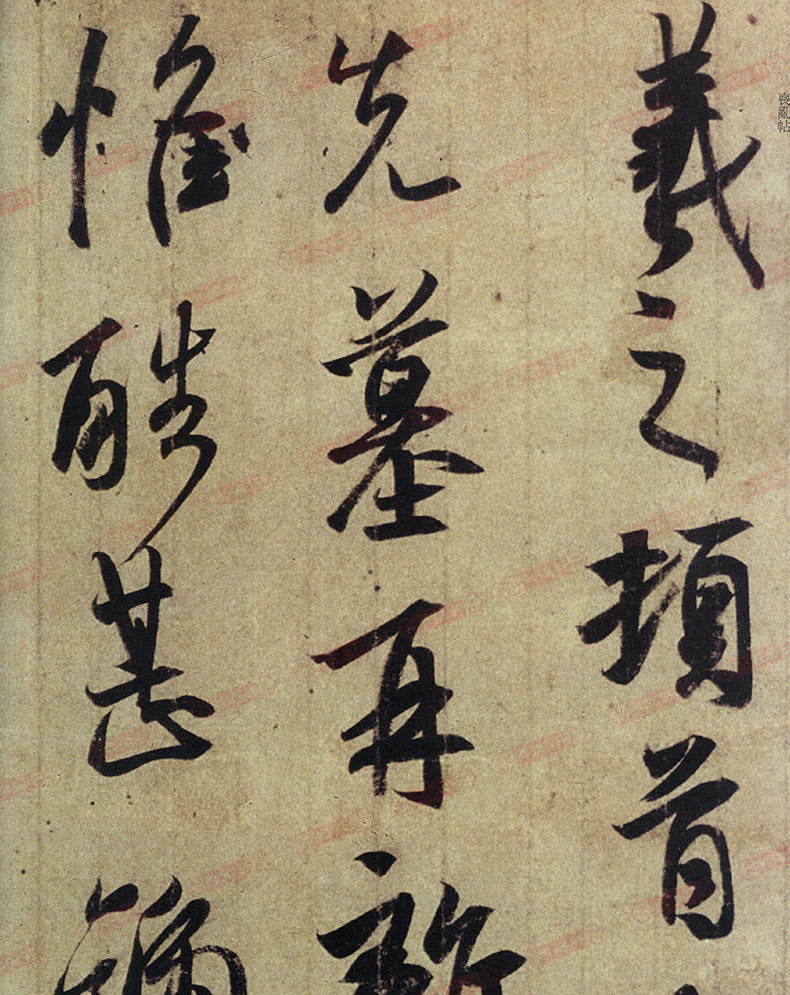 喪亂帖
羲之頓首
先墓再離
惟酷甚號